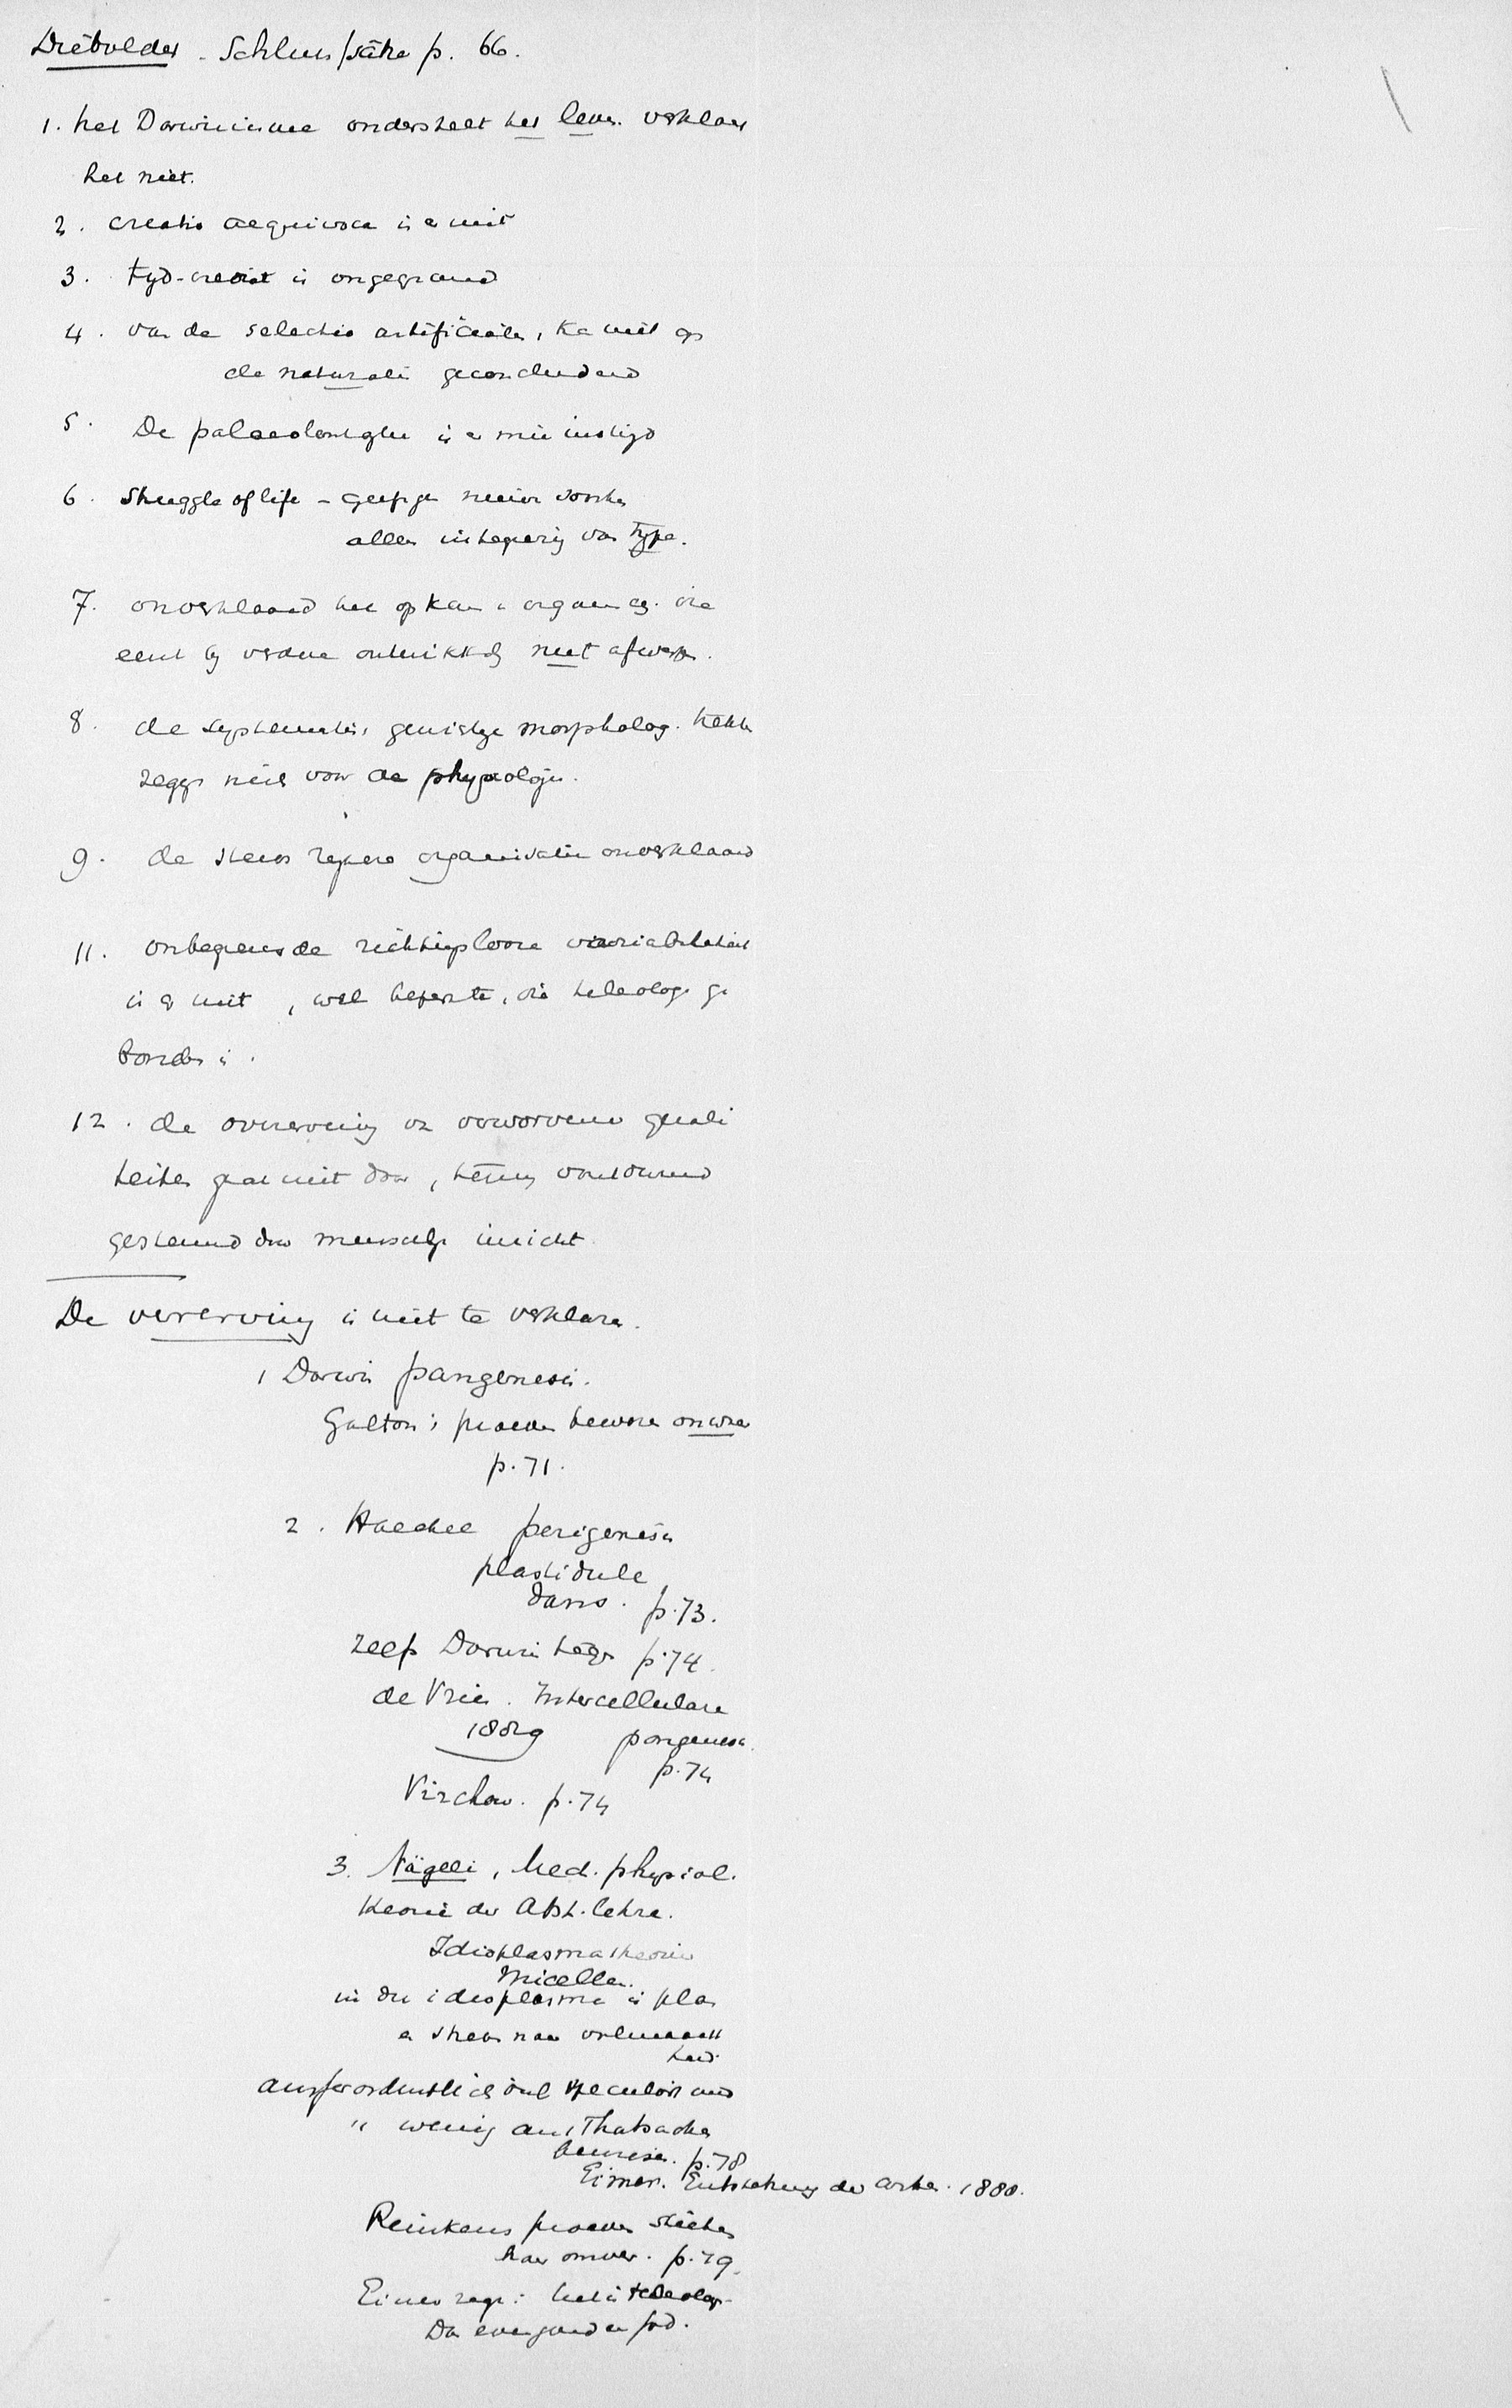 Diebolder - Schlusssätze p. 66.
1. het Darwinisme onderstelt het leven. verklaar
het niet.
2. creatio aequivoca is er niet
3. tyd-crediet is ongegrond
4. van de selectio artificialis, kan niet op
de naturalis geconcludeerd
5. De palaeontologie is er mee in strijd
6. Struggle of life - geeft geen nieuwe soorten
alleen integering van type.
7. onverklaard het opkomen organen, die
eerst by verdere ontwikkeling niet afwerpen.
8. de systematie, morpholog.
zegge niets voor de physiologie.
9. de steeds organisatie onverklaard
11. onbegrensde richtingloose variabiliteit
is er niet, wel beperkte, die teleolog. ge
bonden is.
12. de overerving van verworvene quali
teiten gaat niet door, tenzy voortdurend
gesteund door menschelyk inzicht
De vererving is niet te verklaren.
1 Darwin pangenesis.
Galton's proeven bewezen onwaar
p. 71.
2. Haeckel perigenesis
plastidule
p. 73.
zelfs Darwin tegen p. 74.
de Vries. Intercellulare
1889 pangenesis
p. 74
Virchow. p. 74
3. Nägeli, Mech. physiol.
theorie der Abst. lehre.
Idioplasmatheorie
Micellen.
in die idioplasma is plan
en streven naar volmaakt
heid.
ausserordentlich viel speculiert und
" wenig aus Thatsachen
bewiesen. p. 78
Eimer. Entstehung der Arten. 1888.
Reinkens proeven
haar omver. p. 79.
Eimer zegt: het is teleolog.